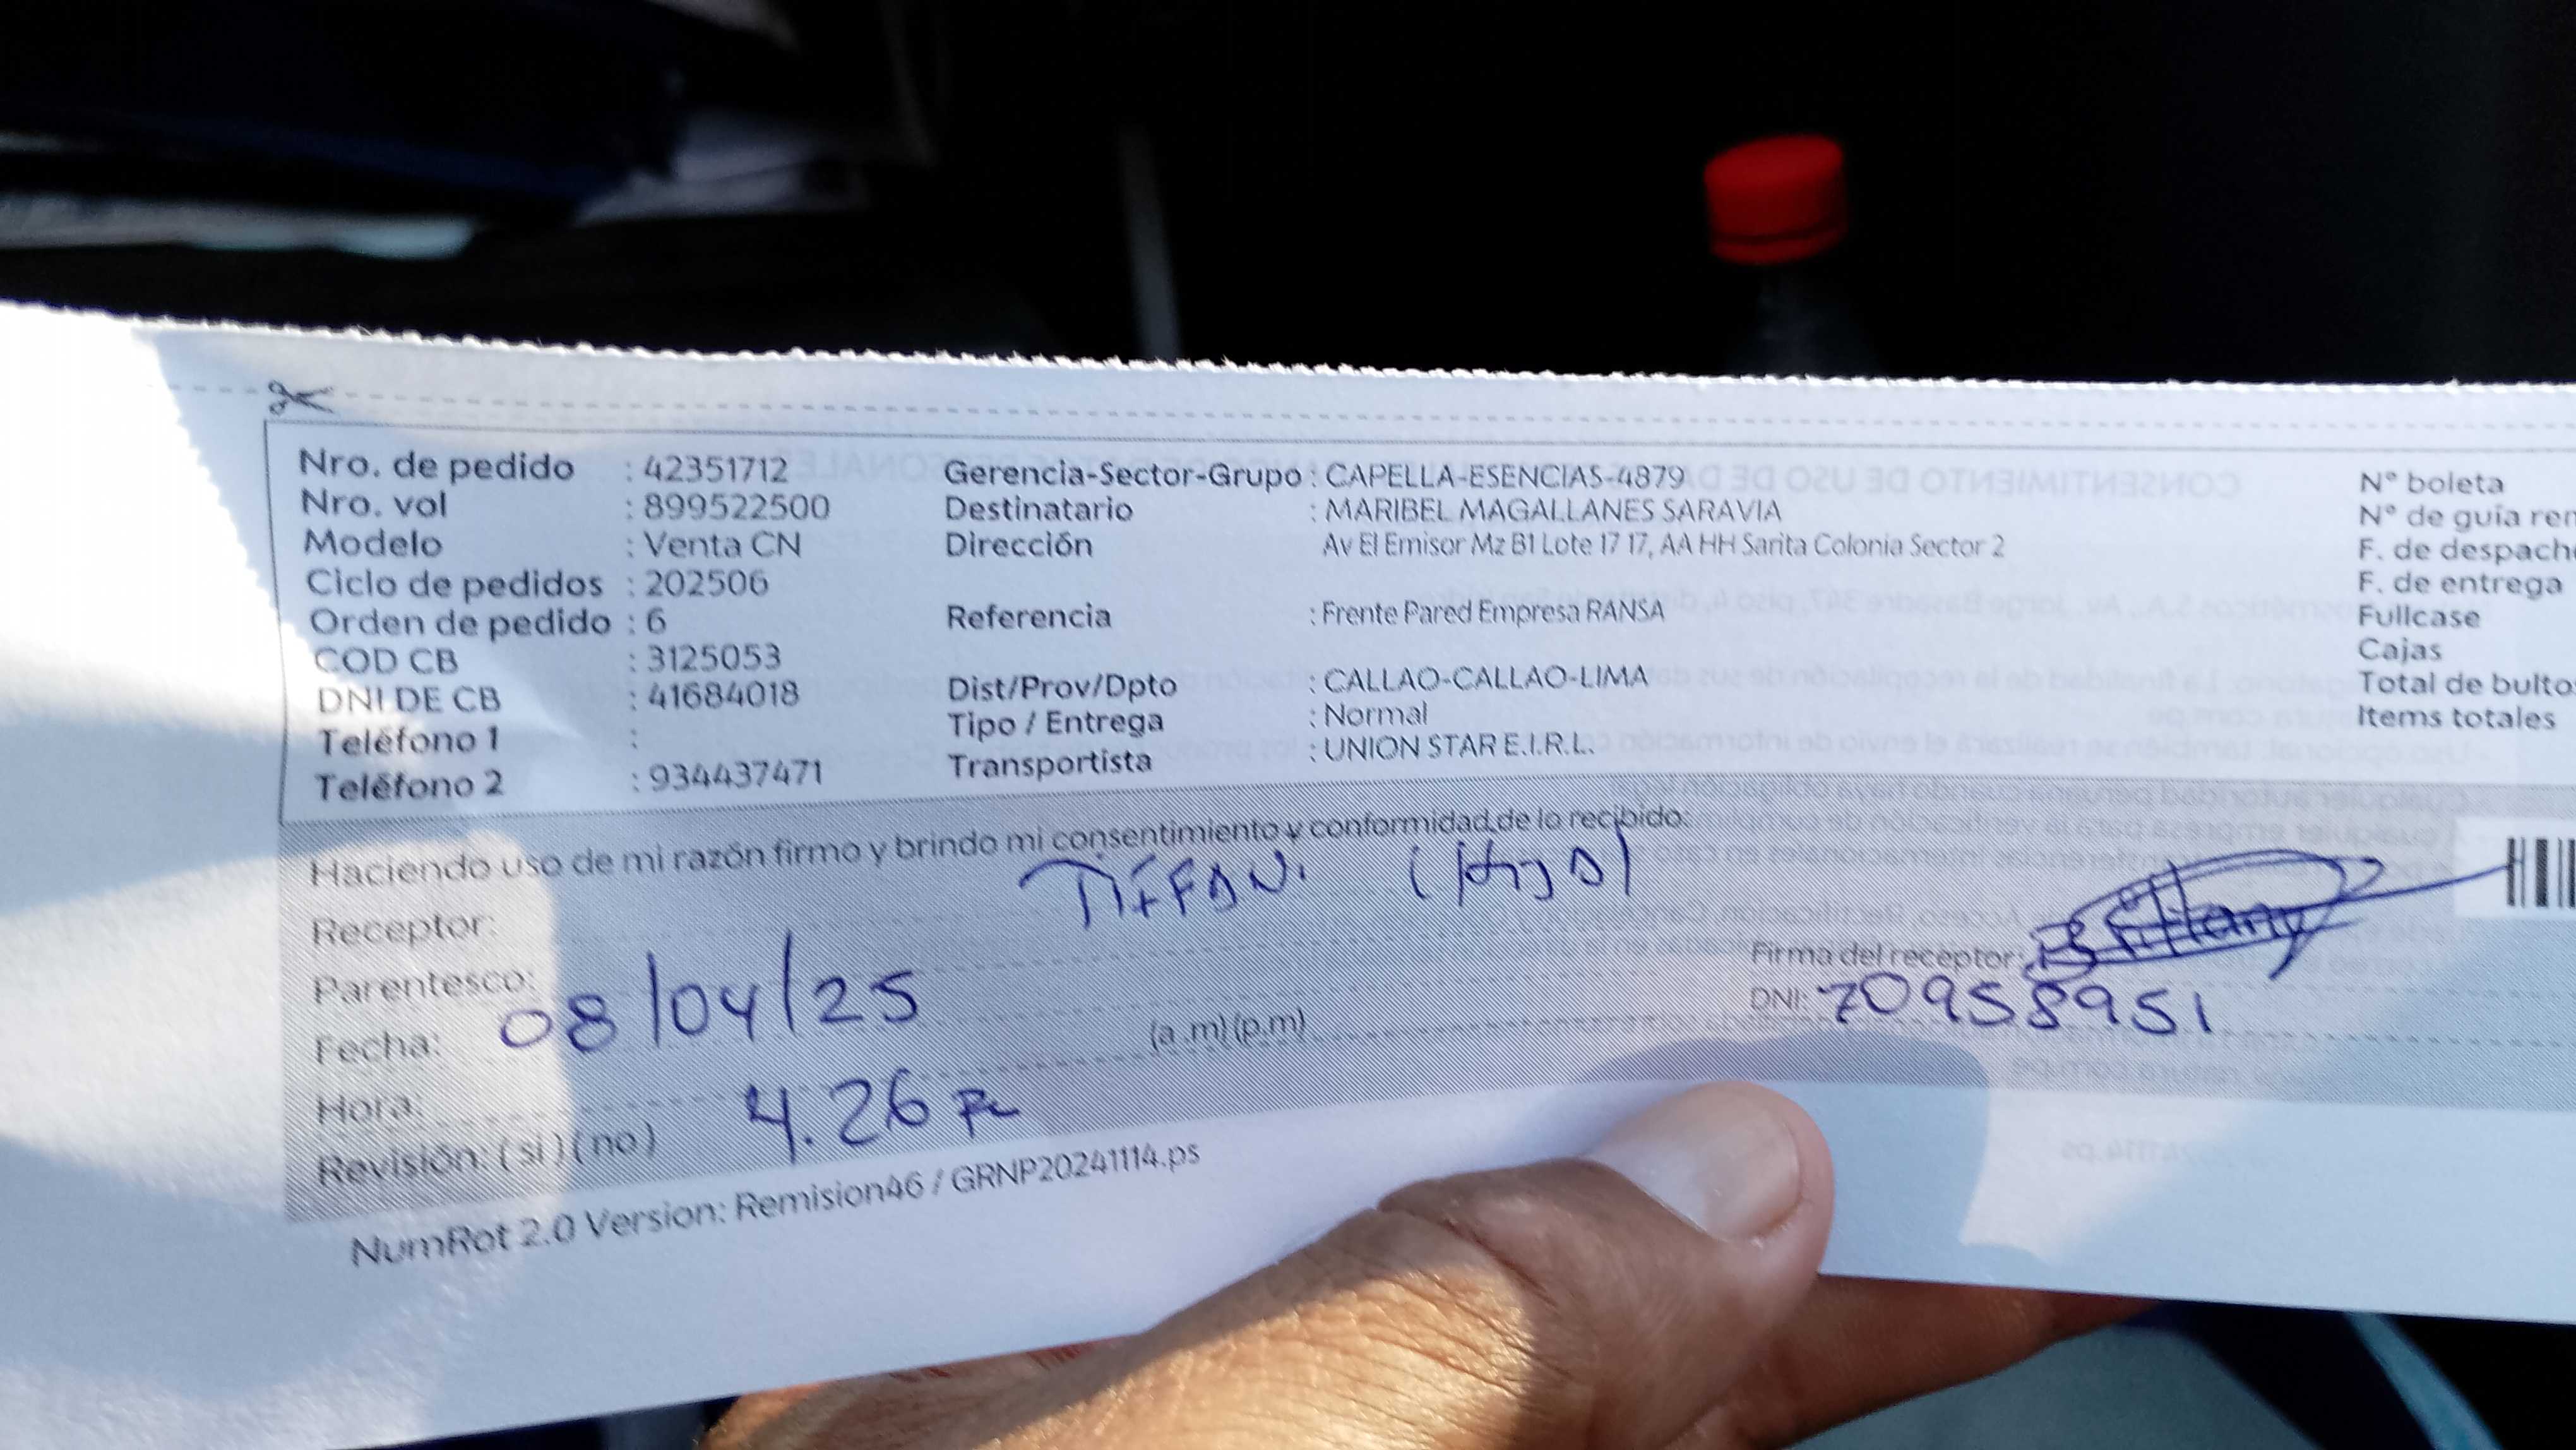 Nro. de pedido : 42351712
Nro. vol : 899522500
Modelo : Venta CN
Ciclo de pedidos : 202506
Orden de pedido : 6
COD CB : 3125053
DNI DE CB : 41684018
Teléfono 1 :
Teléfono 2 : 934437471
Gerencia-Sector-Grupo : CAPELLA-ESENCIAS-4879
Destinatario : MARIBEL MAGALLANES SARAVIA
Dirección Av El Emisor Mz B1 Lote 17 17, AA HH Sarita Colonia Sector 2
Referencia : Frente Pared Empresa RANSA
Dist/Prov/Dpto : CALLAO-CALLAO-LIMA
Tipo / Entrega : Normal
Transportista : UNION STAR E.I.R.L.
N° boleta
N° de guía rem
F. de despach
F. de entrega
Fullcase
Cajas
Total de bulto
Items totales
Haciendo uso de mi razón firmo y brindo mi consentimiento y conformidad de lo recibido:
Receptor: TIFFANI (HIJA)
Parentesco:
Fecha: 08/04/25
Hora: 4.26 (a .m) (p.m)
Revisión: ( si ) ( no )
Firma del receptor:
DNI: 70958951
NumRot 2.0 Version: Remision46 / GRNP20241114.ps